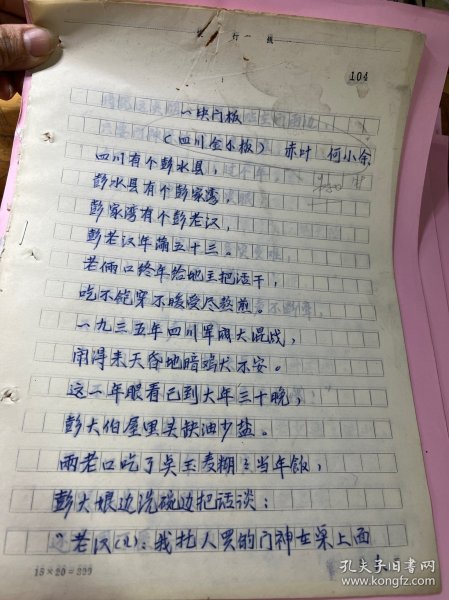 104
一块门板
（四川金小板） 赤叶 何小余
四川有个彭水县，
彭水县有个彭家湾
彭家湾有个彭老汉，
彭老汉年满五十三。
老俩口终年给地主把活干，
吃不饱穿不暖受尽熬煎。
一九三五年四川军阀大混战，
闹得来天昏地暗鸡犬不安。
这一年眼看已到大年三十晚，
彭大伯屋里头缺油少盐。
两老口吃了点玉麦糊糊当年饭，
彭大娘边洗碗边把话谈：
老汉（白）：我托人买的门神在桌上面
15×20＝300
孔夫子旧书网
kongfz.com